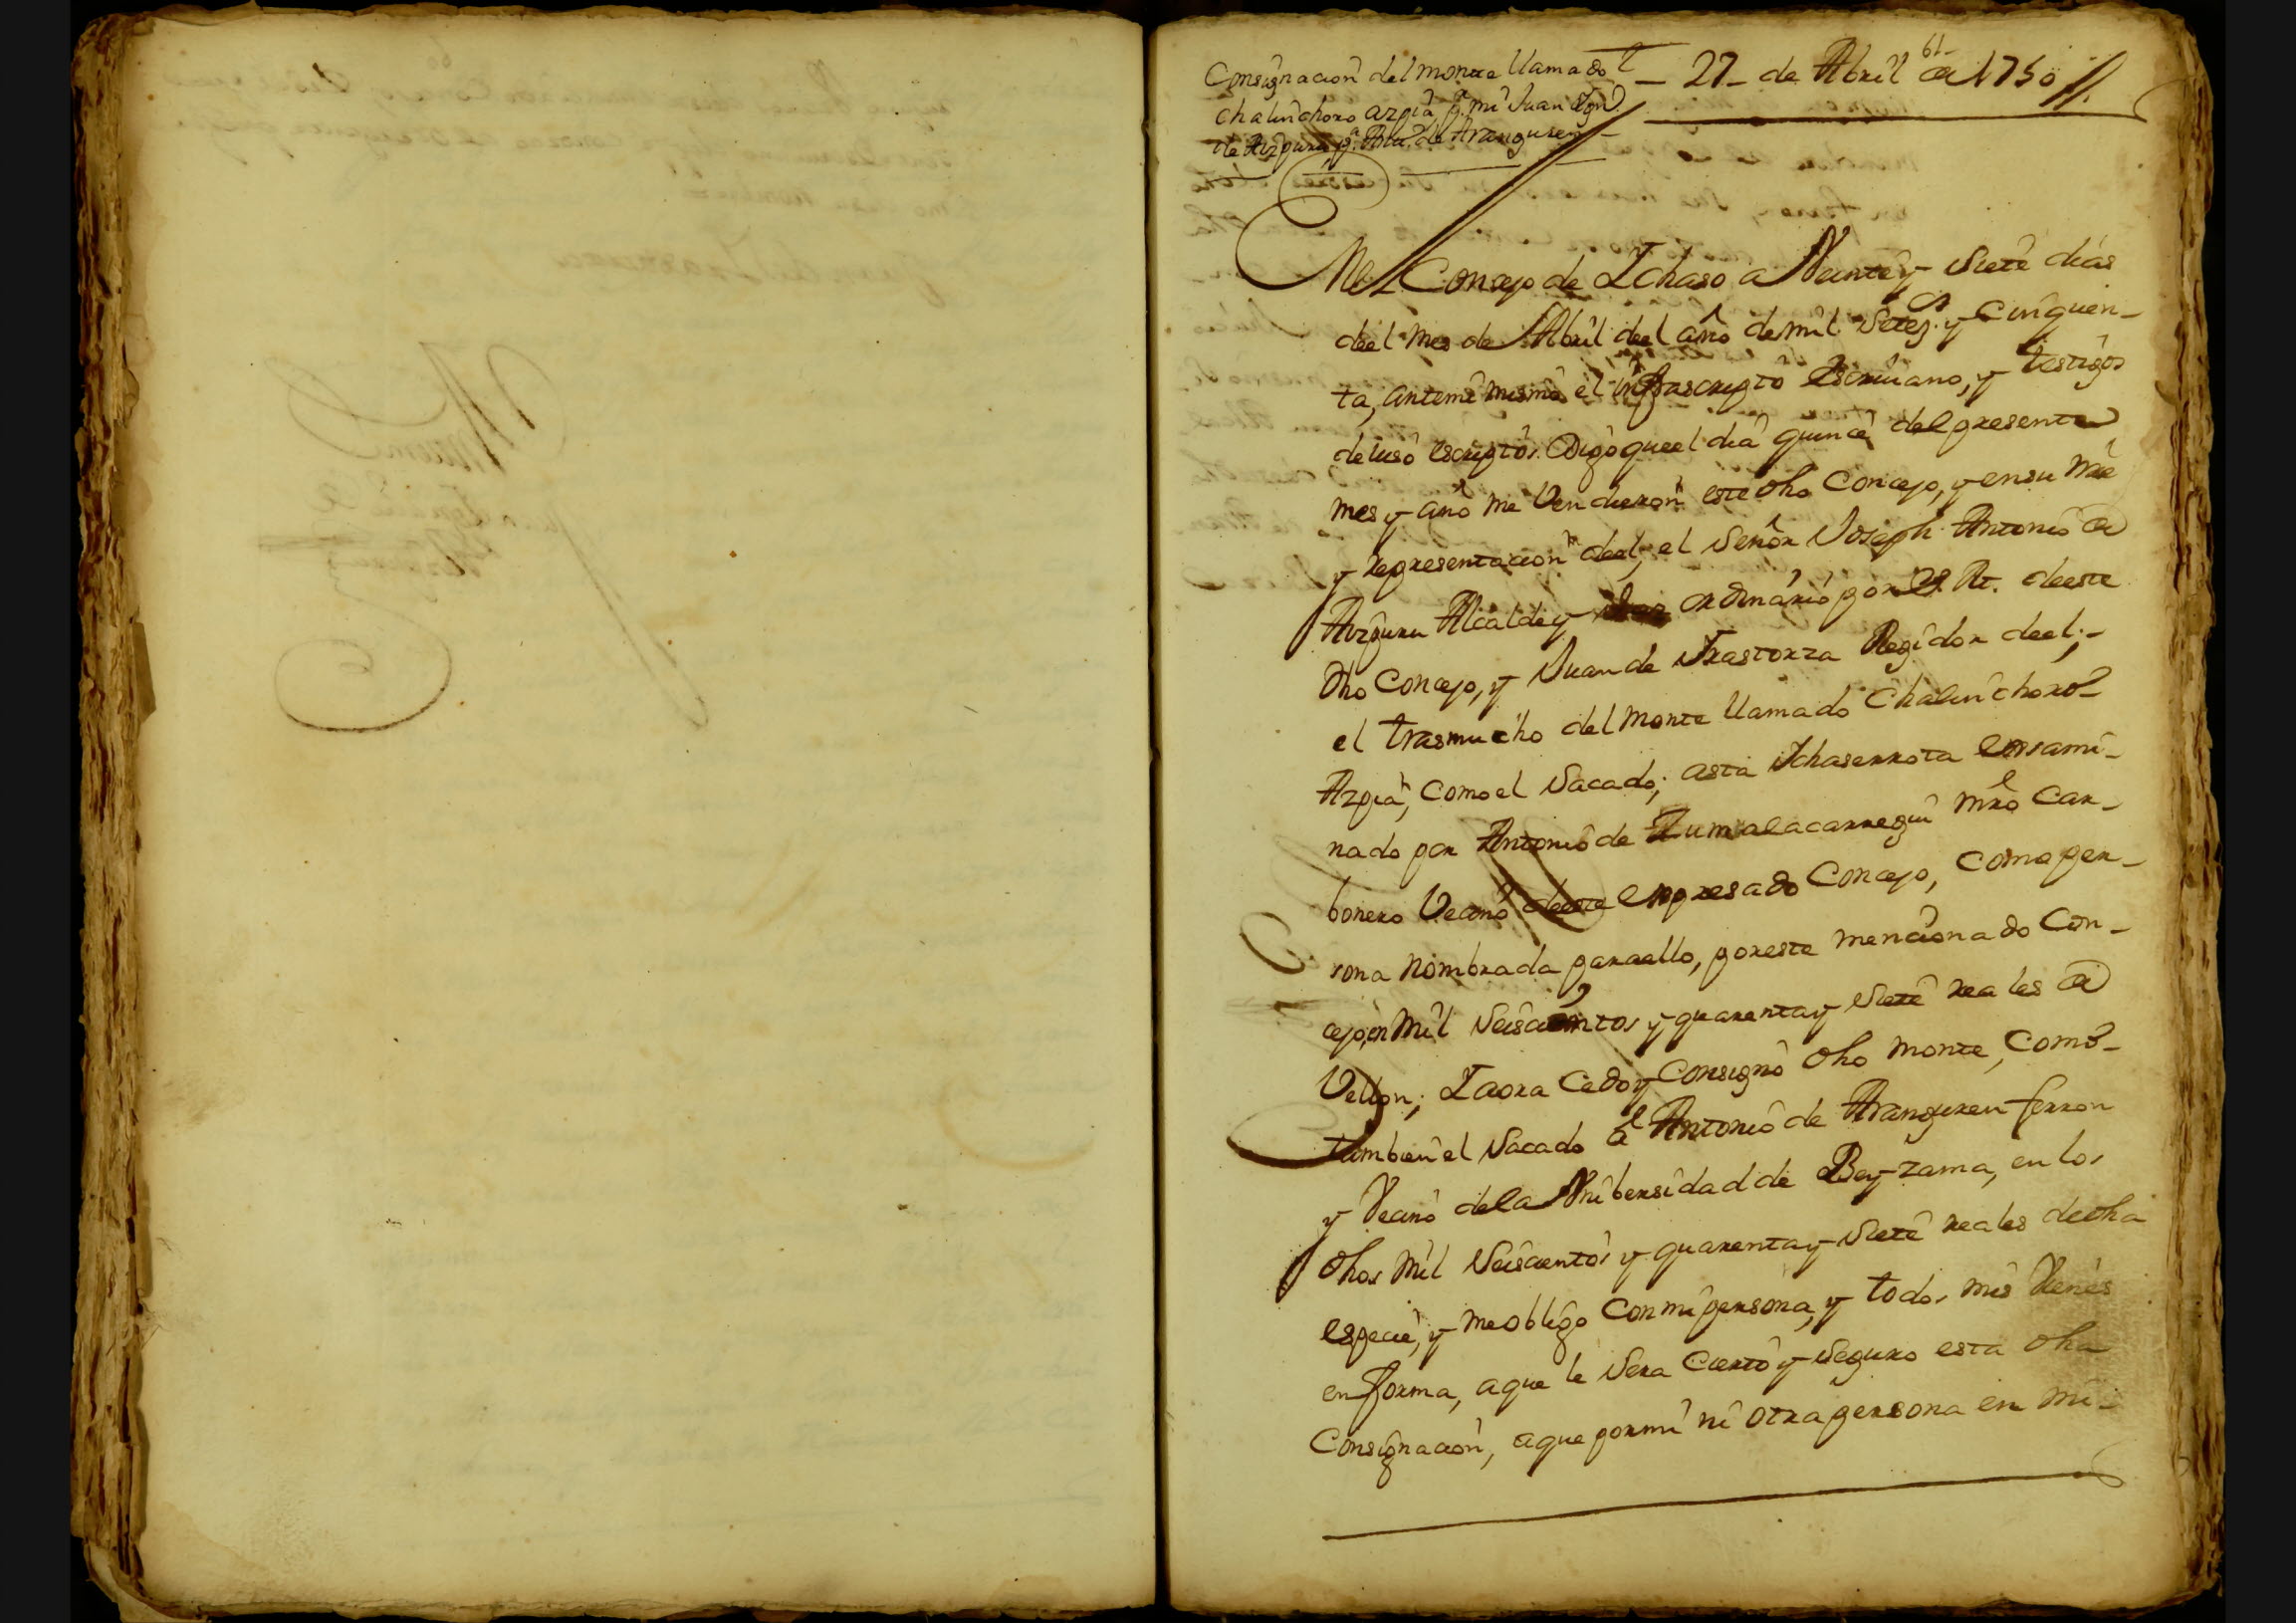 61
Consignacion del monte llamado
27 de Abril de 1750
chalinchoro azpia p.r mi Juan Ign.o
de Aizpuru p.a Ant.o de Aranguren
En el Concejo de Ichaso a Veinte y Siete dias
deel mes de Abril deel año de mil Setez.s y Cinquen-
ta, antemi mismo el infrascripto Escriuano, y testigos
deiuso escriptos. Digo que el dia quince del presente
mes y año me Vendieron este dho Concejo, y en su nre
y representacion deel, el Señor Joseph Antonio de
Aizpuru Alcalde y Juez ordinario por S. M. deeste
dho Concejo, y Juan de Irastorza Regidor deel;
el trasmucho del monte llamado Chalinchoro
Azpia, como el Sacado; asta Ichaserrota exsami-
nado por Antonio de Zumalacarregui mro Car-
bonero Vecino deeste expresado Concejo, como per-
sona nombrada paraello, poreste mencionado Con-
cejo, en Mil Seiscientos y quarenta y Siete reales de
Vellon; I aora Cedo y Consigno dho monte, como
tambien el Sacado a Antonio de Aranguren ferron
y Vecino dela Vnibersidad de Beyzama, en los
dhos Mil Seiscientos y quarenta y Siete reales de dha
especie, y me obligo Con mi persona, y todos mis Vienes
en forma, a que le Sera Cierto y Seguro esta dha
Consignacion, a que por mi ni otra persona en mi